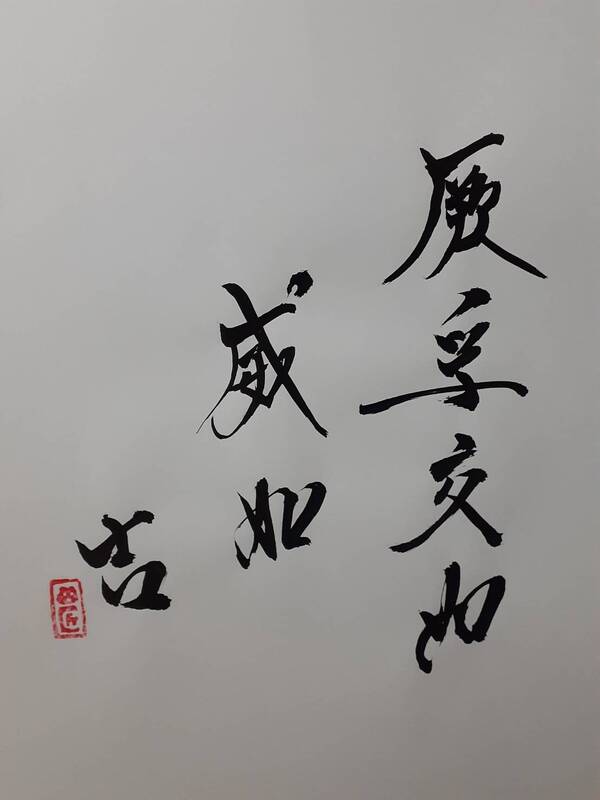 厥孚交如
威如
吉